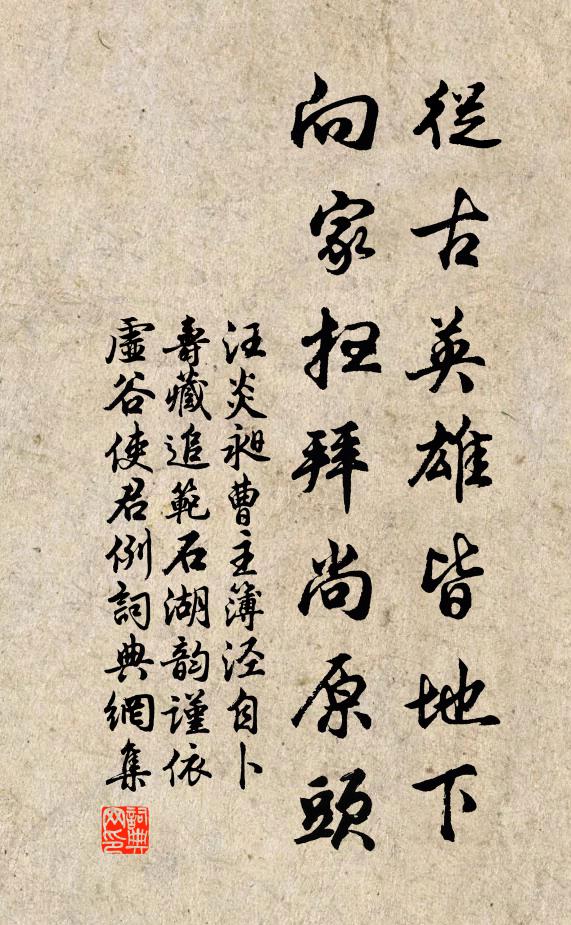 從古英雄皆地下
向家扫拜尚原頭
汪炎昶曹主簿泾自卜
壽藏追範石湖韵謹依
虛谷使君例詞典網集
詞典网印